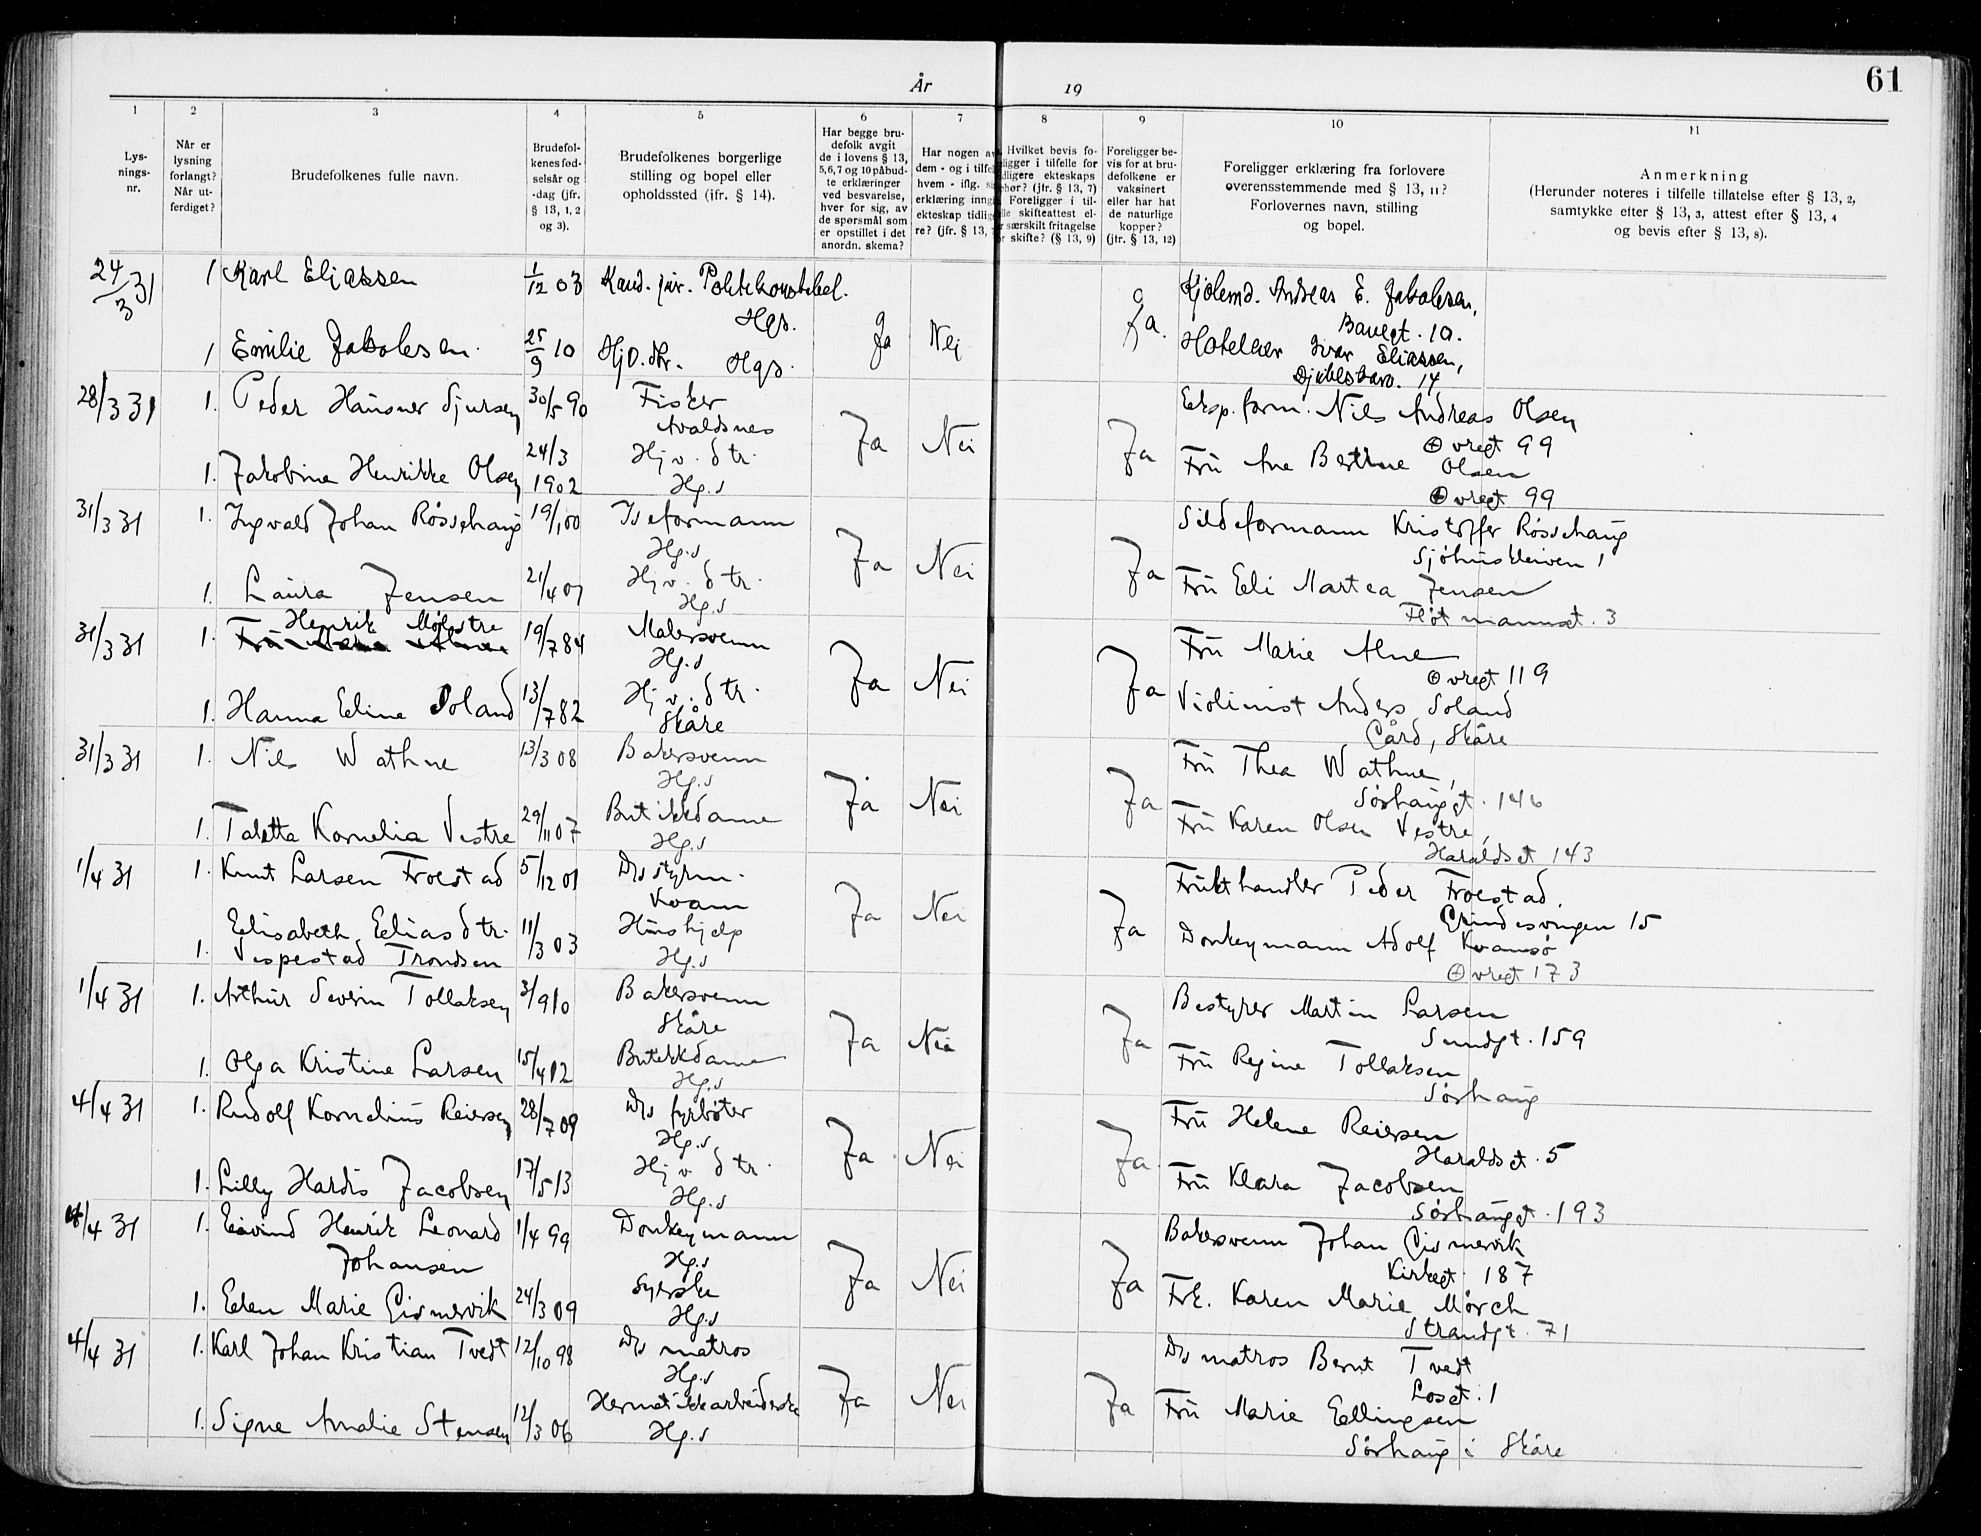 61
År 19
1 2 3 4 5 6 7 8 9 10 11
Lys-
nings-
nr.
Når er
lysning
forlangt?
Når ut-
ferdiget?
Brudefolkenes fulle navn.
Brudefol-
kenes fød-
selsår og
-dag (jfr.
§ 13, 1, 2
og 3).
Brudefolkenes borgerlige
stilling og bopel eller
opholdssted (ifr. § 14).
Har begge bru-
defolk avgit
de i lovens § 13,
5,6,7 og 10 påbud-
te erklæringer
ved besvarelse,
hver for sig, av
de spørsmål som
er opstillet i det
anordn. skema?
Har nogen av
dem - og i tilfe
hvem - iflg.
erklæring inng
ekteskap tidlig
re? (jfr. § 13,
Hvilket bevis fo-
ligger i tilfelle for
dligere ekteskaps
phør? (jfr. § 13, 7)
Foreligger i til-
lle skifteattest el-
r særskilt fritagelse
r skifte? (§ 13, 9)
Foreligger be-
vis for at bru-
defolkene er
vaksinert
eller har hat
de naturlige
kopper?
(jfr. § 13, 12)
Foreligger erklæring fra forlovere
overensstemmende med § 13, 11?
Forlovernes navn, stilling
og bopel.
Anmerkning
(Herunder noteres i tilfelle tillatelse efter § 13, 2,
samtykke efter § 13, 3, attest efter § 13, 4
og bevis efter § 13, 8).
24/3 31 1 Karl Eliassen 1/12 03 Kand. jur. Politikonstabel. Hgs. Ja Nei Ja. Andreas E. Jakobsen, 10.
1 Emilie Jakobsen. 25/9 10 Hjv. dtr. Hgs. Hoteleier Ivar Eliassen, 14
28/3 31 1. Peder Hausner Sjursen 30/5 90 Fisker Avaldsnes Ja Nei Ja Eksp. form. Nils Andreas Olsen Øvregt 99
1. Jakobine Henrikke Olsen 24/3 1902 Hjv. dtr. Hg.s Fru Ane Bertine Olsen Øvregt 99
31/3 31 1. Ingvald Johan Røssehaug 19/1 00 Iseformann Hg.s Ja Nei Ja Sildeformann Kristoffer Røssehaug 1
1. Laura Jensen 21/4 07 Hjv. dtr. Hg.s Fru Eli Martea Jensen Fløtmannsgt. 3
31/3 31 1. Henrik Møgstre 19/7 84 Malersvenn Hg.s Ja Nei Ja Fru Marie Alne Øvregt 119
1. Hanna Eline Soland 13/7 82 Hjv. dtr. Skåre Violinist Anders Soland Gård, Skåre
31/3 31 1. Nils Wathne 13/3 08 Bakersvenn Hg.s Ja Nei Ja Fru Thea Wathne, Sørhauggt. 146
1. Taletta Kornelia Vestre 29/11 07 Butikkdame Hg.s Fru Karen Olsen Vestre, Haraldsgt 143
1/4 31 1. Knut Larsen Froestad 5/12 01 D/s styrm. Kvam Ja Nei Ja Frukthandler Peder Froestad, Grindesvingen 15
1. Elisabeth Eliasdtr. Vespestad Trondsen 11/3 03 Hushjelp Hg.s Donkeymann Adolf Kvamsø Øvregt 173
1/4 31 1. Arthur Severin Tollaksen 3/9 10 Bakersvenn Skåre Ja Nei Ja Bestyrer Martin Larsen Sundgt. 159
1. Olga Kristine Larsen 15/4 12 Butikkdame Hg.s Fru Regine Tollaksen Sørhaug
4/4 31 1. Rudolf Kornelius Reiersen 28/7 09 D/s fyrbøter Hg.s Ja Nei Ja Fru Helene Reiersen Haraldsgt. 5
1. Lilly Hardis Jacobsen 17/5 13 Hjv. dtr. Hg.s Fru Klara Jacobsen Sørhauggt. 193
4/4 31 1. Eivind Henrik Leonard Johansen 1/4 99 Donkeymann Hg.s Ja Nei Ja Bakersvenn Johan Gismervik Kirkegt. 187
1. Ellen Marie Gismervik 24/3 09 Syerske Hg.s Frk. Karen Marie Mørch Strandgt. 71
4/4 31 1. Karl Johan Kristian Tvedt 12/10 98 D/s matros Hg.s Ja Nei Ja D/s matros Bernt Tvedt Losgt. 1
1. Signe Amalie Stensen 12/3 06 Hermetikkarbeiderske Hg.s Fru Marie Ellingsen Sørhaug i Skåre